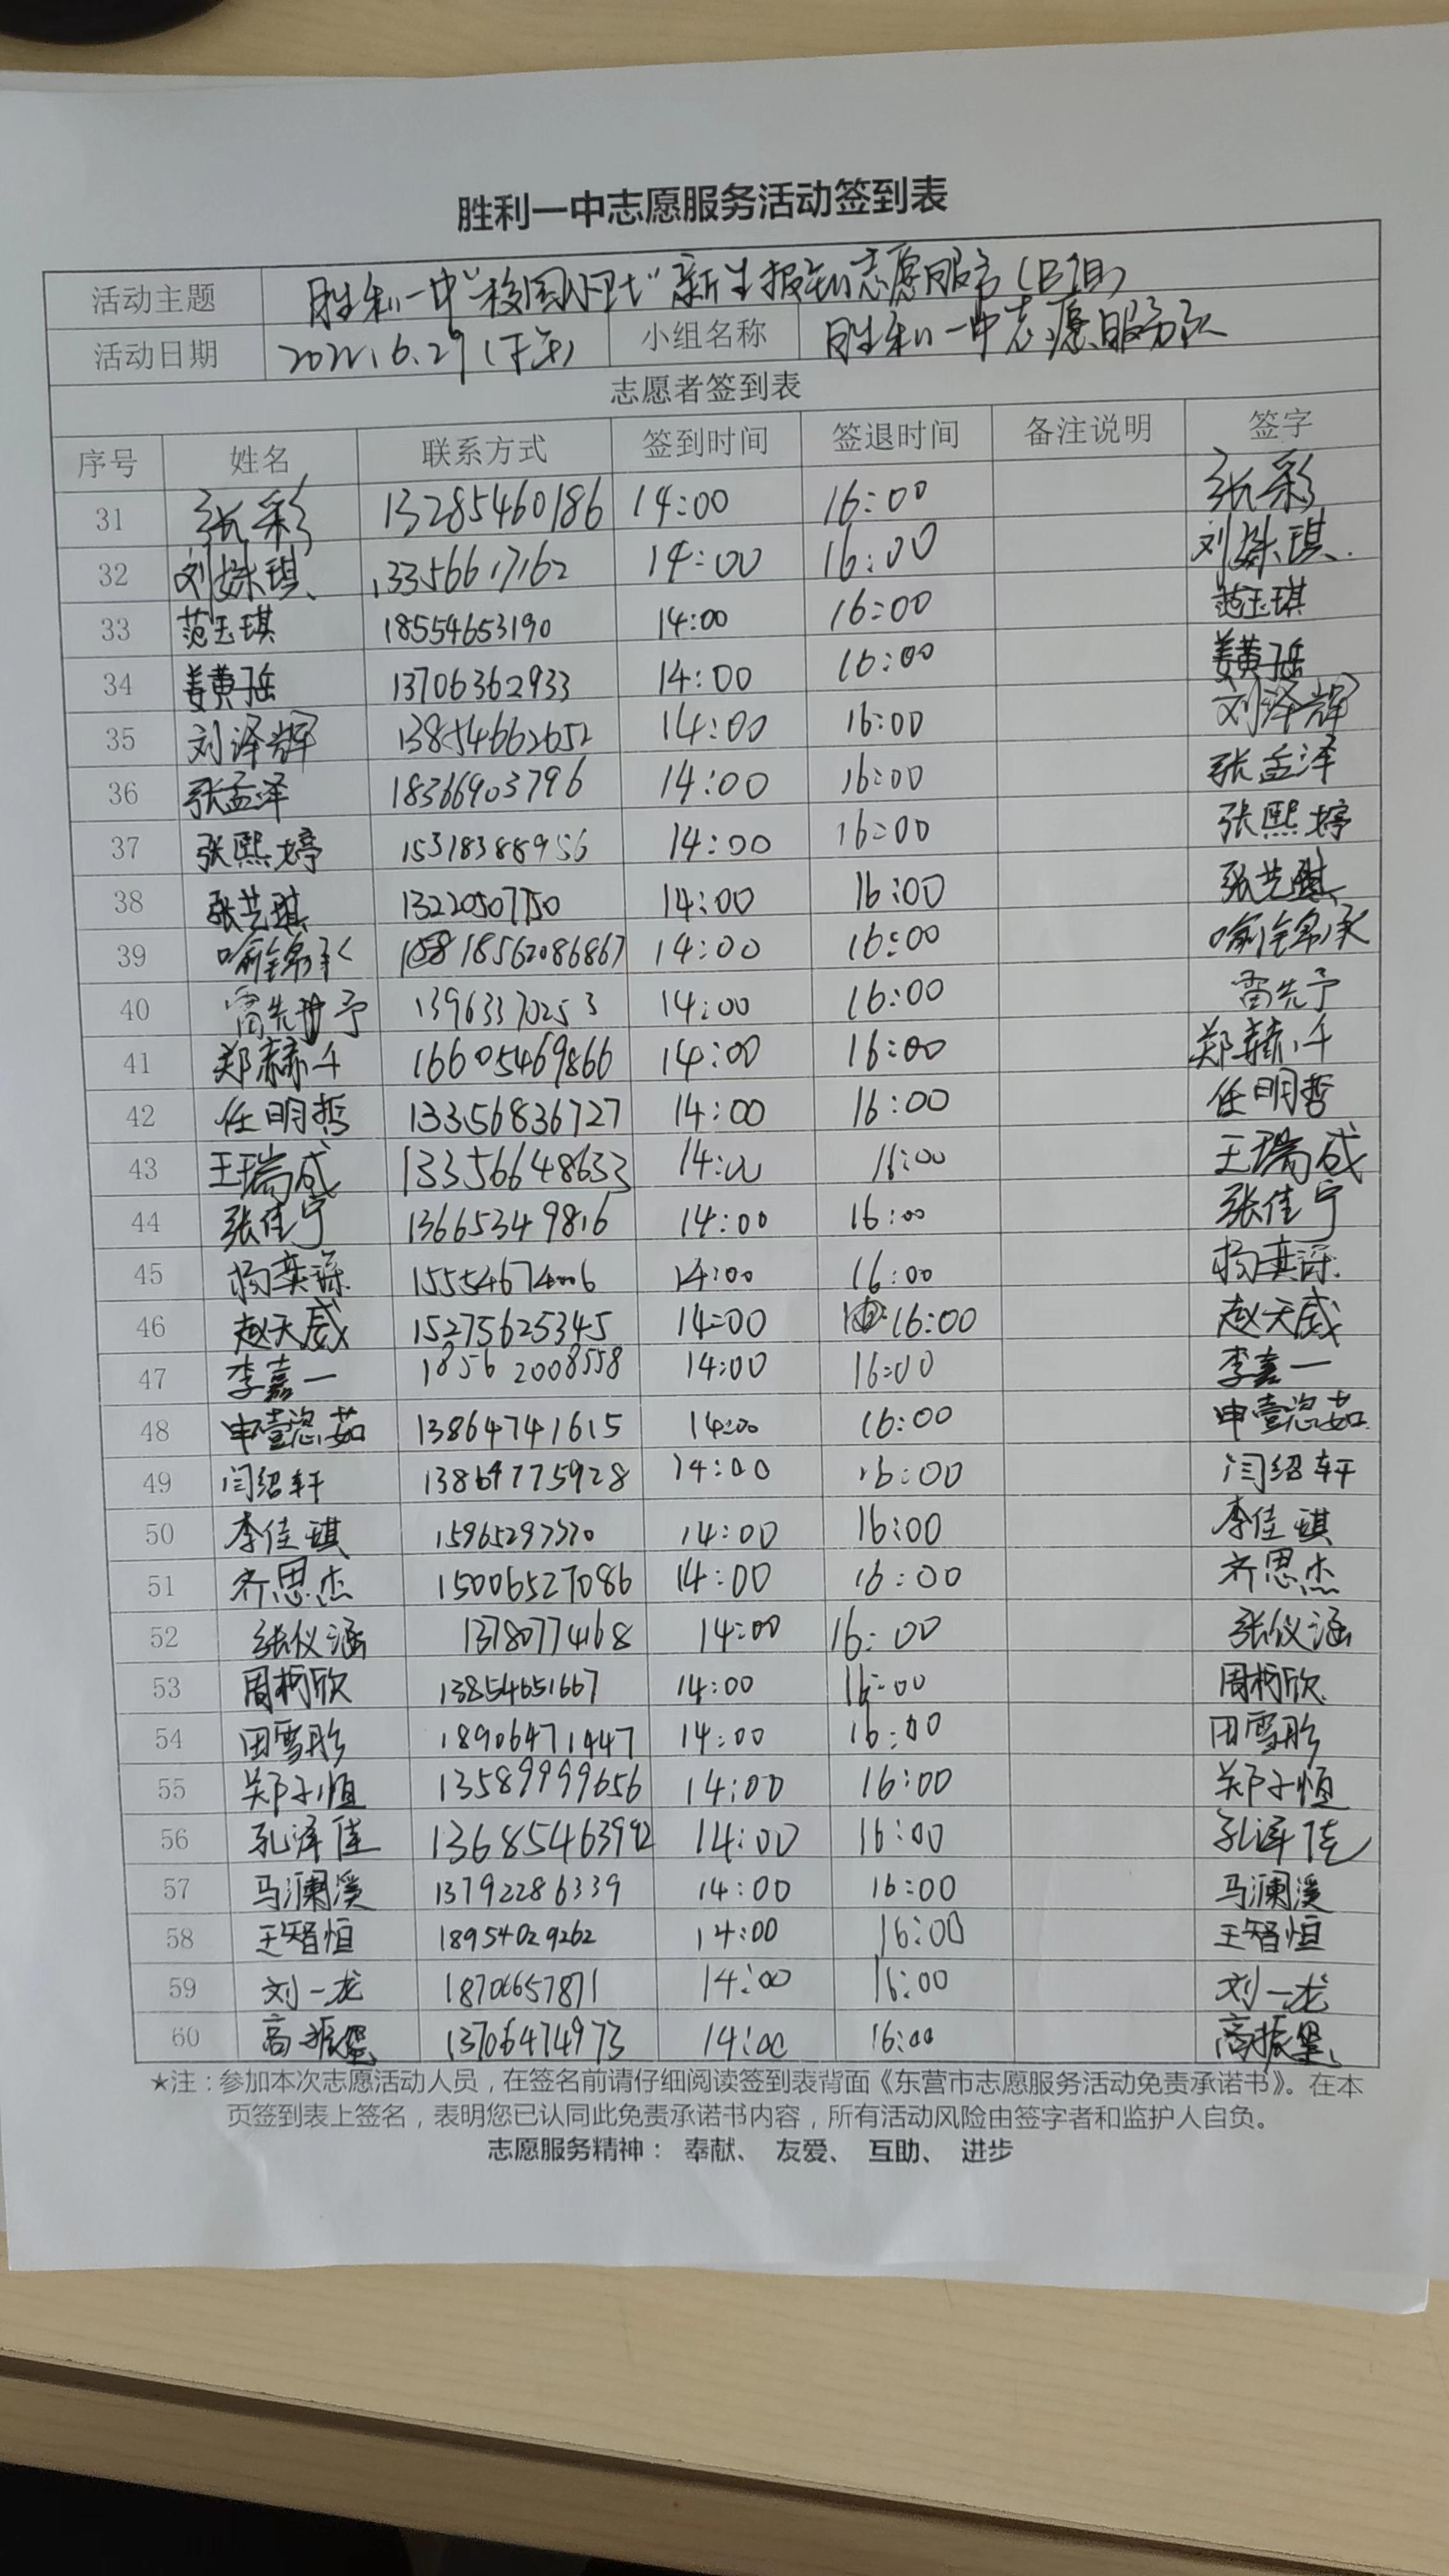 胜利一中志愿服务活动签到表
活动主题 胜利一中"校园小卫士"新生报到志愿服务(B组)
活动日期 2022.6.29(下午) 小组名称 胜利一中志愿服务队
志愿者签到表
序号 姓名 联系方式 签到时间 签退时间 备注说明 签字
31 张彩 13285460186 14:00 16:00 张彩
32 刘姝琪 13356617162 14:00 16:00 刘姝琪
33 范玉琪 18554653190 14:00 16:00 范玉琪
34 姜黄子岳 13706362933 14:00 16:00 姜黄子岳
35 刘泽辉 13854662652 14:00 16:00 刘泽辉
36 张孟泽 18366903796 14:00 16:00 张孟泽
37 张熙婷 15318388956 14:00 16:00 张熙婷
38 张艺骐 14:00 16:00 张艺骐
39 喻锦承 18562086867 14:00 16:00 喻锦承
40 雷先予 13963370253 14:00 16:00 雷先予
41 郑赫千 16605469866 14:00 16:00 郑赫千
42 任明哲 13356836727 14:00 16:00 任明哲
43 王瑞成 13356648633 14:00 16:00 王瑞成
44 张佳宁 13665349816 14:00 16:00 张佳宁
45 杨奕琛 15554674006 14:00 16:00 杨奕琛
46 赵天威 15275625345 14:00 16:00 赵天威
47 李嘉一 18562008558 14:00 16:00 李嘉一
48 申壹恣茹 13864741615 14:00 16:00 申壹恣茹
49 闫绍轩 14:00 16:00 闫绍轩
50 李佳琪 14:00 16:00 李佳琪
51 齐思杰 15006527086 14:00 16:00 齐思杰
52 张仪涵 13780774168 14:00 16:00 张仪涵
53 周柯欣 13854651667 14:00 16:00 周柯欣
54 田雪彤 18906471447 14:00 16:00 田雪彤
55 郑子恒 13589999656 14:00 16:00 郑子恒
56 孔泽佳 13685463992 14:00 16:00 孔泽佳
57 马澜溪 13792286339 14:00 16:00 马澜溪
58 王智恒 18954029262 14:00 16:00 王智恒
59 刘一龙 18706657871 14:00 16:00 刘一龙
60 高振堡 13706474973 14:00 16:00 高振堡
★注：参加本次志愿活动人员，在签名前请仔细阅读签到表背面《东营市志愿服务活动免责承诺书》。在本
页签到表上签名，表明您已认同此免责承诺书内容，所有活动风险由签字者和监护人自负。
志愿服务精神： 奉献、 友爱、 互助、 进步